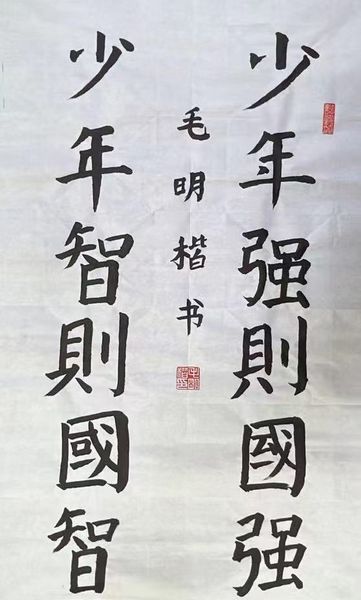 少年强則國强
毛明楷书
少年智則國智